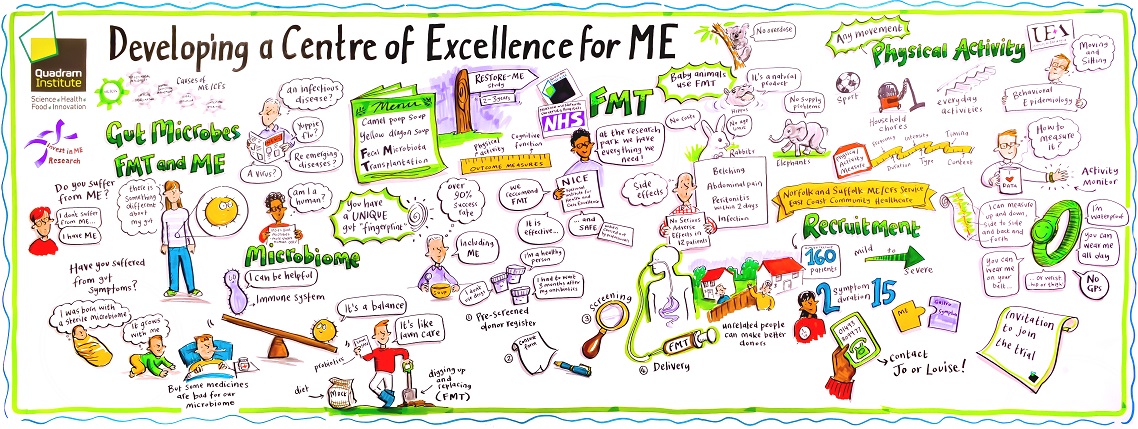 Developing a Centre of Excellence for ME
Quadram
Institute
Science • Health •
Food • Innovation
Invest in ME
Research
Causes of
ME/CFS
Gut Microbes
FMT and ME
an infectious
disease?
Yuppie
flu?
Re emerging
diseases?
A virus?
Do you suffer
from ME?
I don't suffer
from ME...
I have ME
there is
something
different
about
my gut
am I a
human?
Have you suffered
from gut
symptoms?
I was born with
a sterile microbiome
It grows
with me
But some medicines
are bad for our
microbiome
Microbiome
I can be helpful
Immune system
It's a balance!
It's like
lawn care!
probiotics
diet
Muck
digging up
and replacing
(FMT)
Menu
Camel poop soup
Yellow dragon soup
Fecal Microbiota
Transplantation
You have
a UNIQUE
gut "fingerprint"
RESTORE-ME
study
2-3 years
Physical
activity
Cognitive
function
OUTCOME MEASURES
over
90%
Success
rate
Including
ME
Soup
NHS
FMT
at the research
park we have
everything we
need!
NICE
National
Institute for
Health and
Care Excellence
we
recommend
FMT
It is
effective...
... and
SAFE
Side
effects
No Serious
Adverse
Effects in
12 patients
Belching
Abdominal pain
Peritonitis
within 2 days
Infection
Baby animals
use FMT
No overdose
It's a natural
product
Hippos
No costs
No age
limit
Rabbits
No supply
problems
Elephants
I'm a healthy
person
I don't
use drugs
I had to wait
3 months after
my antibiotics
① Pre-Screened
donor register
②
Consent
form
③ Screening
④ Delivery
FMT
unrelated people
can make better
donors
Any movement
Physical Activity
UEA
Moving
and
Sitting
Behavioural
Epidemiology
Sport
Household
chores
everyday
activities
Physical
Activity
Measure
Frequency
Intensity
Timing
Duration
Type
Context
How to
measure
it?
DATA
Activity
Monitor
Norfolk and Suffolk ME/CFS Service
East Coast Community Healthcare
Recruitment
160
patients
mild
to
severe
2
Symptom
duration
15
ME
Symptoms
Contact
Jo or Louise!
I can measure
up and down,
side to side
and back and
forth
I'm
waterproof
You can
wear me
all day
You can
wear me
on your
belt...
... or wrist
No
GPS
Invitation
to join
the trial